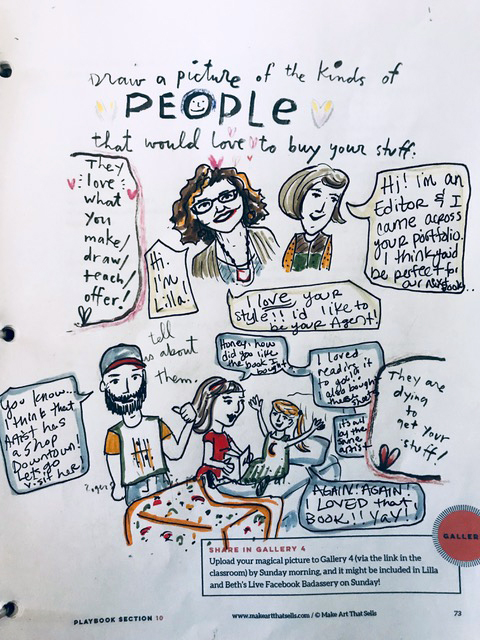 Draw a picture of the kinds of
PEOPLE
that would love to buy your stuff.
They
love
what
you
make/
draw/
teach/
offer!
Hi.
I'm
Lilla.
Hi! I'm an
Editor & I
came across
your portfolio.
I think you'd
be perfect for
our new book..
I love your
style!! I'd like to
be your Agent!
tell
us about
them.
Honey, how
did you like
the book I
bought
I loved
reading it
to you! I
also bought
it's all
by the
same
artist
They are
dying
to
get your
stuff!
You know...
I think that
Artist has
a shop
Downtown!
Let's go
visit her
AGAIN! AGAIN!
I LOVED that
BOOK!! Yay!
GALLER
SHARE IN GALLERY 4
Upload your magical picture to Gallery 4 (via the link in the
classroom) by Sunday morning, and it might be included in Lilla
and Beth's Live Facebook Badassery on Sunday!
PLAYBOOK SECTION 10
www.makeartthatsells.com / © Make Art That Sells
73